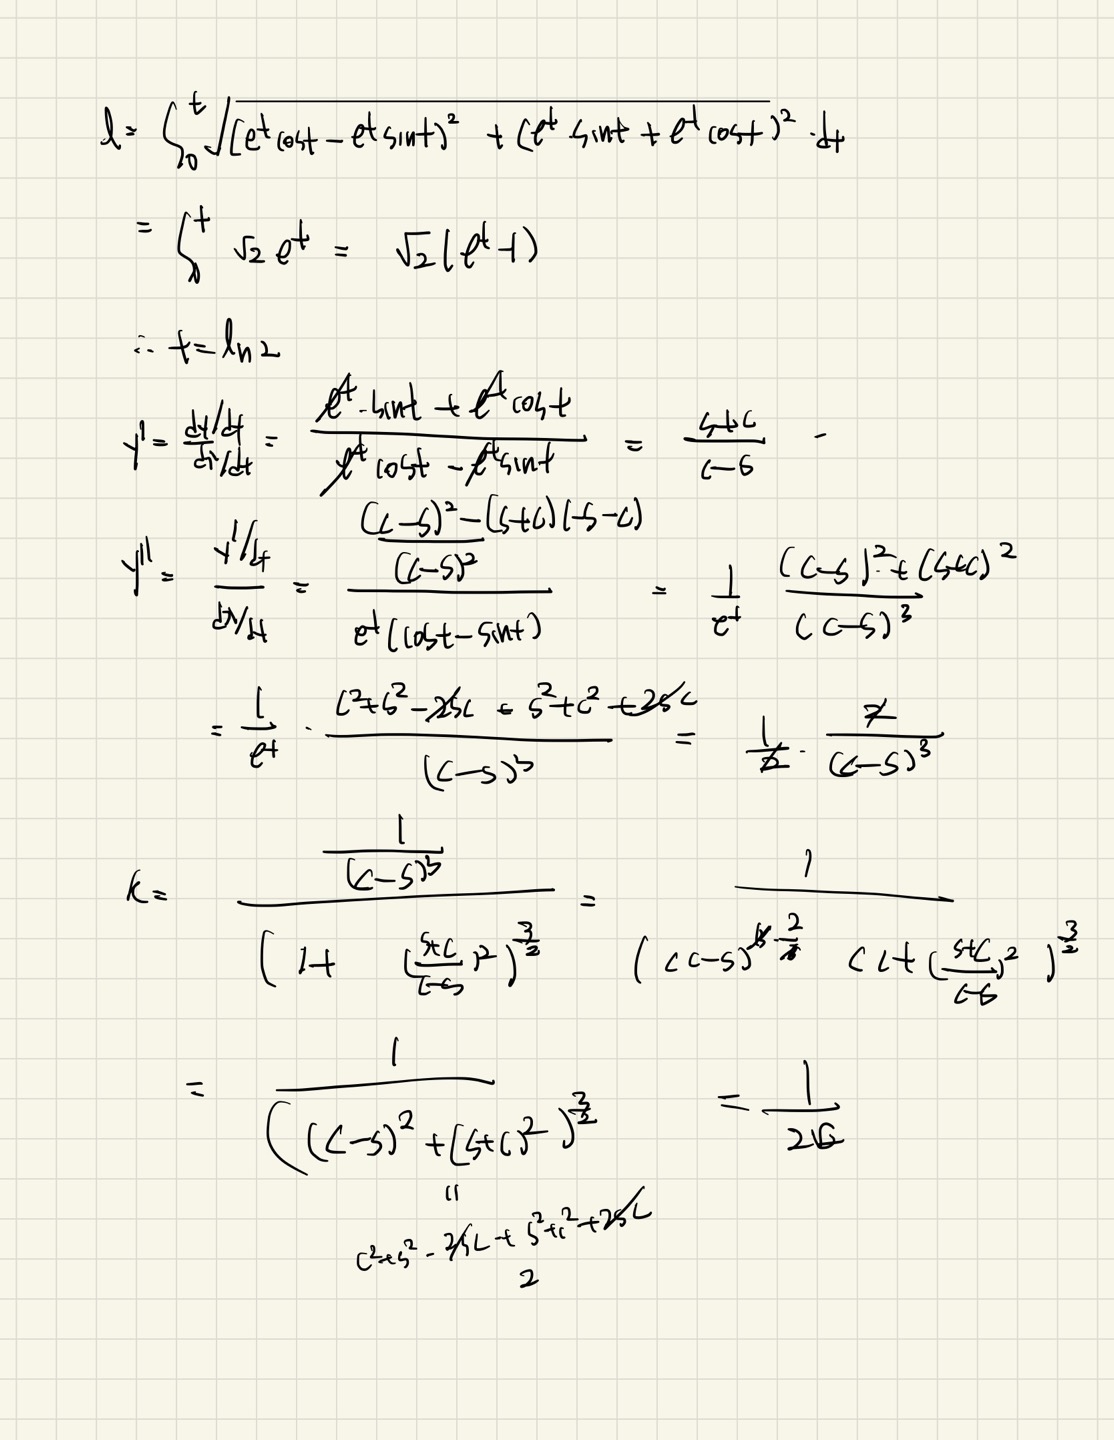 l = ∫₀ᵗ √((eᵗcost − eᵗsint)² + (eᵗ sint + eᵗ cost)²) · dt
= ∫₀ᵗ √2 eᵗ = √2(eᵗ-1)
∴ t = ln2
y' = (dy/dt)/(dx/dt) = (eᵗ·sint + eᵗcost)/(eᵗcost − eᵗsint) = (s+c)/(c−s)
y'' = (y'/dt)/(dx/dt) = (((c−s)² − (s+c)(−s−c))/(c−s)²)/(eᵗ(cost−sint)) = 1/eᵗ ((c−s)² + (s+c)²)/(c−s)³
= 1/eᵗ · (c²+s²−2sc + s²+c²+2sc)/(c−s)³ = 1/2 · 2/(c−s)³
k = (1/(c−s)³)/(1+ ((s+c)/(c−s))²)^(3/2) = 1/((c−s)^(3·2/3) (1+((s+c)/(c−s))²)^(3/2)
= 1/((c−s)² + (s+c)²)^(3/2) = 1/(2√2)
=
c²+s² − 2sc + s²+c²+2sc
2